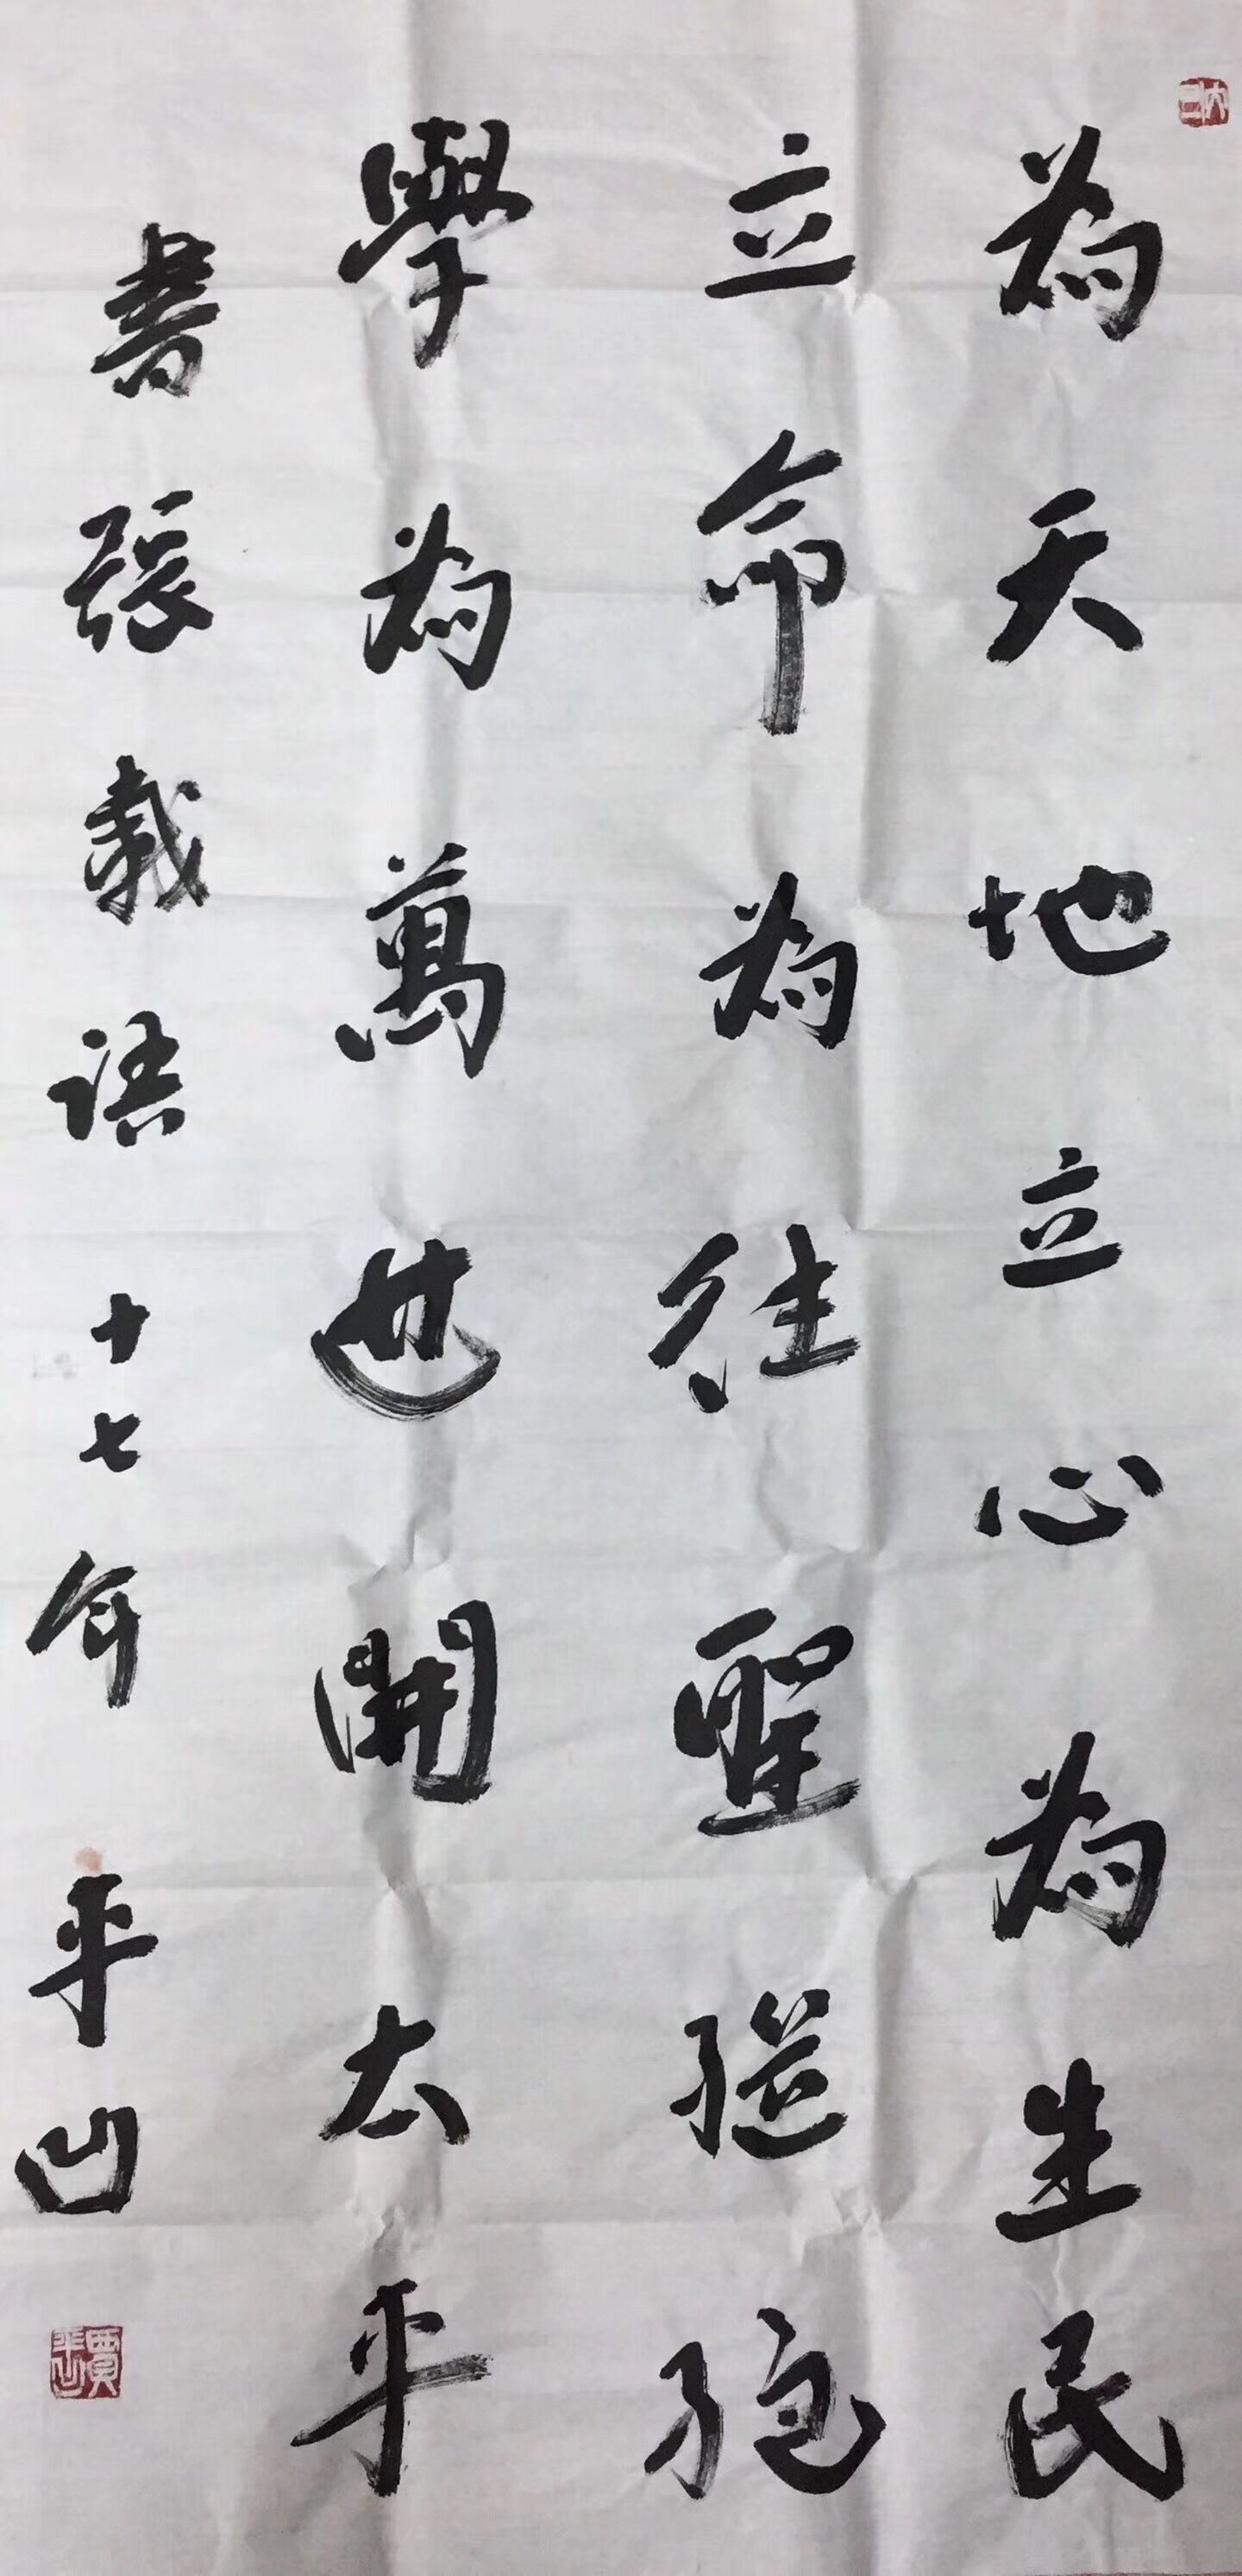 為天地立心為生民
立命為往聖繼絕
學為萬世開太平
書張載語 十七年 平凹
賈平凹